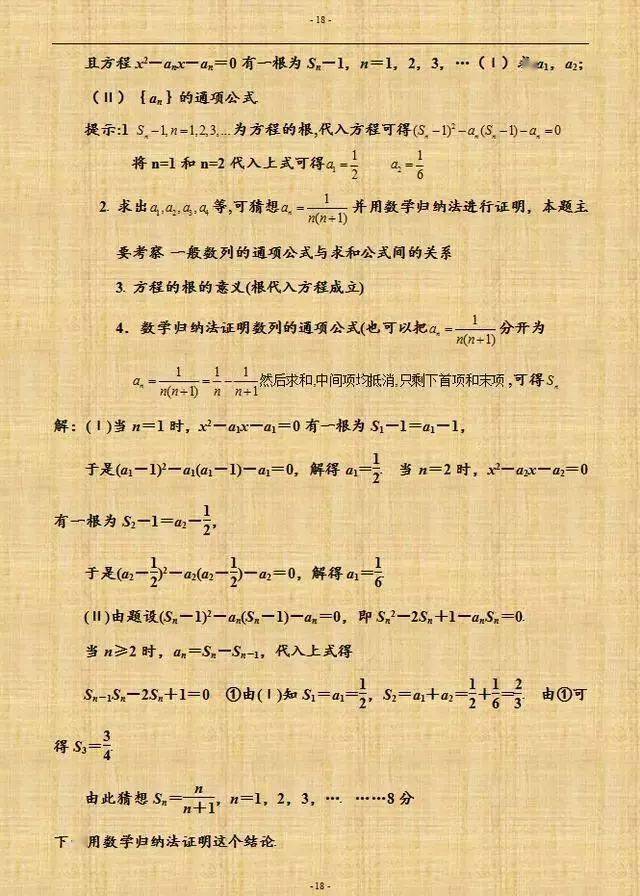 - 18 -
且方程 x²－aₙx－aₙ＝0 有一根为 Sₙ－1，n＝1，2，3，…（Ⅰ） a₁，a₂；
（II）｛aₙ｝的通项公式.
提示:1 Sₙ－1,n=1,2,3,...为方程的根,代入方程可得(Sₙ－1)²－aₙ(Sₙ－1)－aₙ=0
将 n=1 和 n=2 代入上式可得a₁=1/2 a₂=1/6
2. 求出a₁,a₂,a₃,a₄等,可猜想aₙ=1/n(n+1) 并用数学归纳法进行证明，本题主
要考察 一般数列的通项公式与求和公式间的关系
3. 方程的根的意义(根代入方程成立)
4．数学归纳法证明数列的通项公式(也可以把aₙ=1/n(n+1)分开为
aₙ=1/n(n+1)=1/n-1/n+1然后求和,中间项均抵消,只剩下首项和末项,可得Sₙ
解：(Ⅰ)当 n＝1 时，x²－a₁x－a₁＝0 有一根为 S₁－1＝a₁－1，
于是(a₁－1)²－a₁(a₁－1)－a₁＝0，解得 a₁＝1/2. 当 n＝2 时，x²－a₂x－a₂＝0
有一根为 S₂－1＝a₂－1/2，
于是(a₂－1/2)²－a₂(a₂－1/2)－a₂＝0，解得 a₁＝1/6.
(Ⅱ)由题设(Sₙ－1)²－aₙ(Sₙ－1)－aₙ＝0，即 Sₙ²－2Sₙ＋1－aₙSₙ＝0.
当 n≥2 时，aₙ＝Sₙ－Sₙ₋₁，代入上式得
Sₙ₋₁Sₙ－2Sₙ＋1＝0 ①由(Ⅰ)知 S₁＝a₁＝1/2，S₂＝a₁＋a₂＝1/2＋1/6＝2/3. 由①可
得 S₃＝3/4.
由此猜想 Sₙ＝n/n＋1，n＝1，2，3，…. ……8 分
下 用数学归纳法证明这个结论.
- 18 -